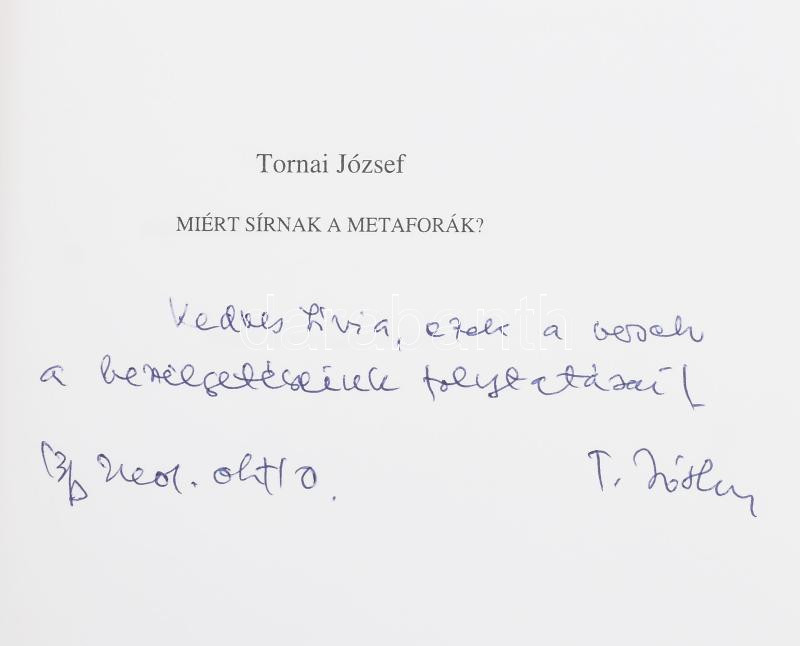 Tornai József
MIÉRT SÍRNAK A METAFORÁK?
Kedves Lívia, ezek a versek
a beszélgetéseink folytatásai!
Bp 2001. okt 10.
T. József
darabanth